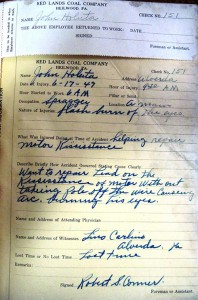 RED LANDS COAL COMPANY
HEILWOOD PA.
CHECK NO. 151
NAME John Holuta
THE ABOVE EMPLOYEE RETURNED TO WORK: DATE
SIGNED
Foreman or Assistant.
RED LANDS COAL COMPANY
HEILWOOD, PA.
Check No. 151
Name John Holuta
Address Alverda
Date of Injury 6-17-47
Hour A.M.
Hour Started to Work 6 A.M.
Place or Location A
Occupation Spraggey
Nature of Injuries flash burn of the eyes
What Was Injured Doing at Time of Accident helping repair
motor Resistance
Describe Briefly How Accident Occurred Stating Cause Clearly
Want to repair Lead on the
Resistance of motor With out
Taking Pole off the wire Causing
arc. burning his eyes.
Name and Address of Attending Physician
Name and Address of Witnesses Lino Carlino
Alverda, Pa
Lost Time or No Lost Time Lost Time
Remarks:
Signed Robert S. Conner
Foreman or Assistant.